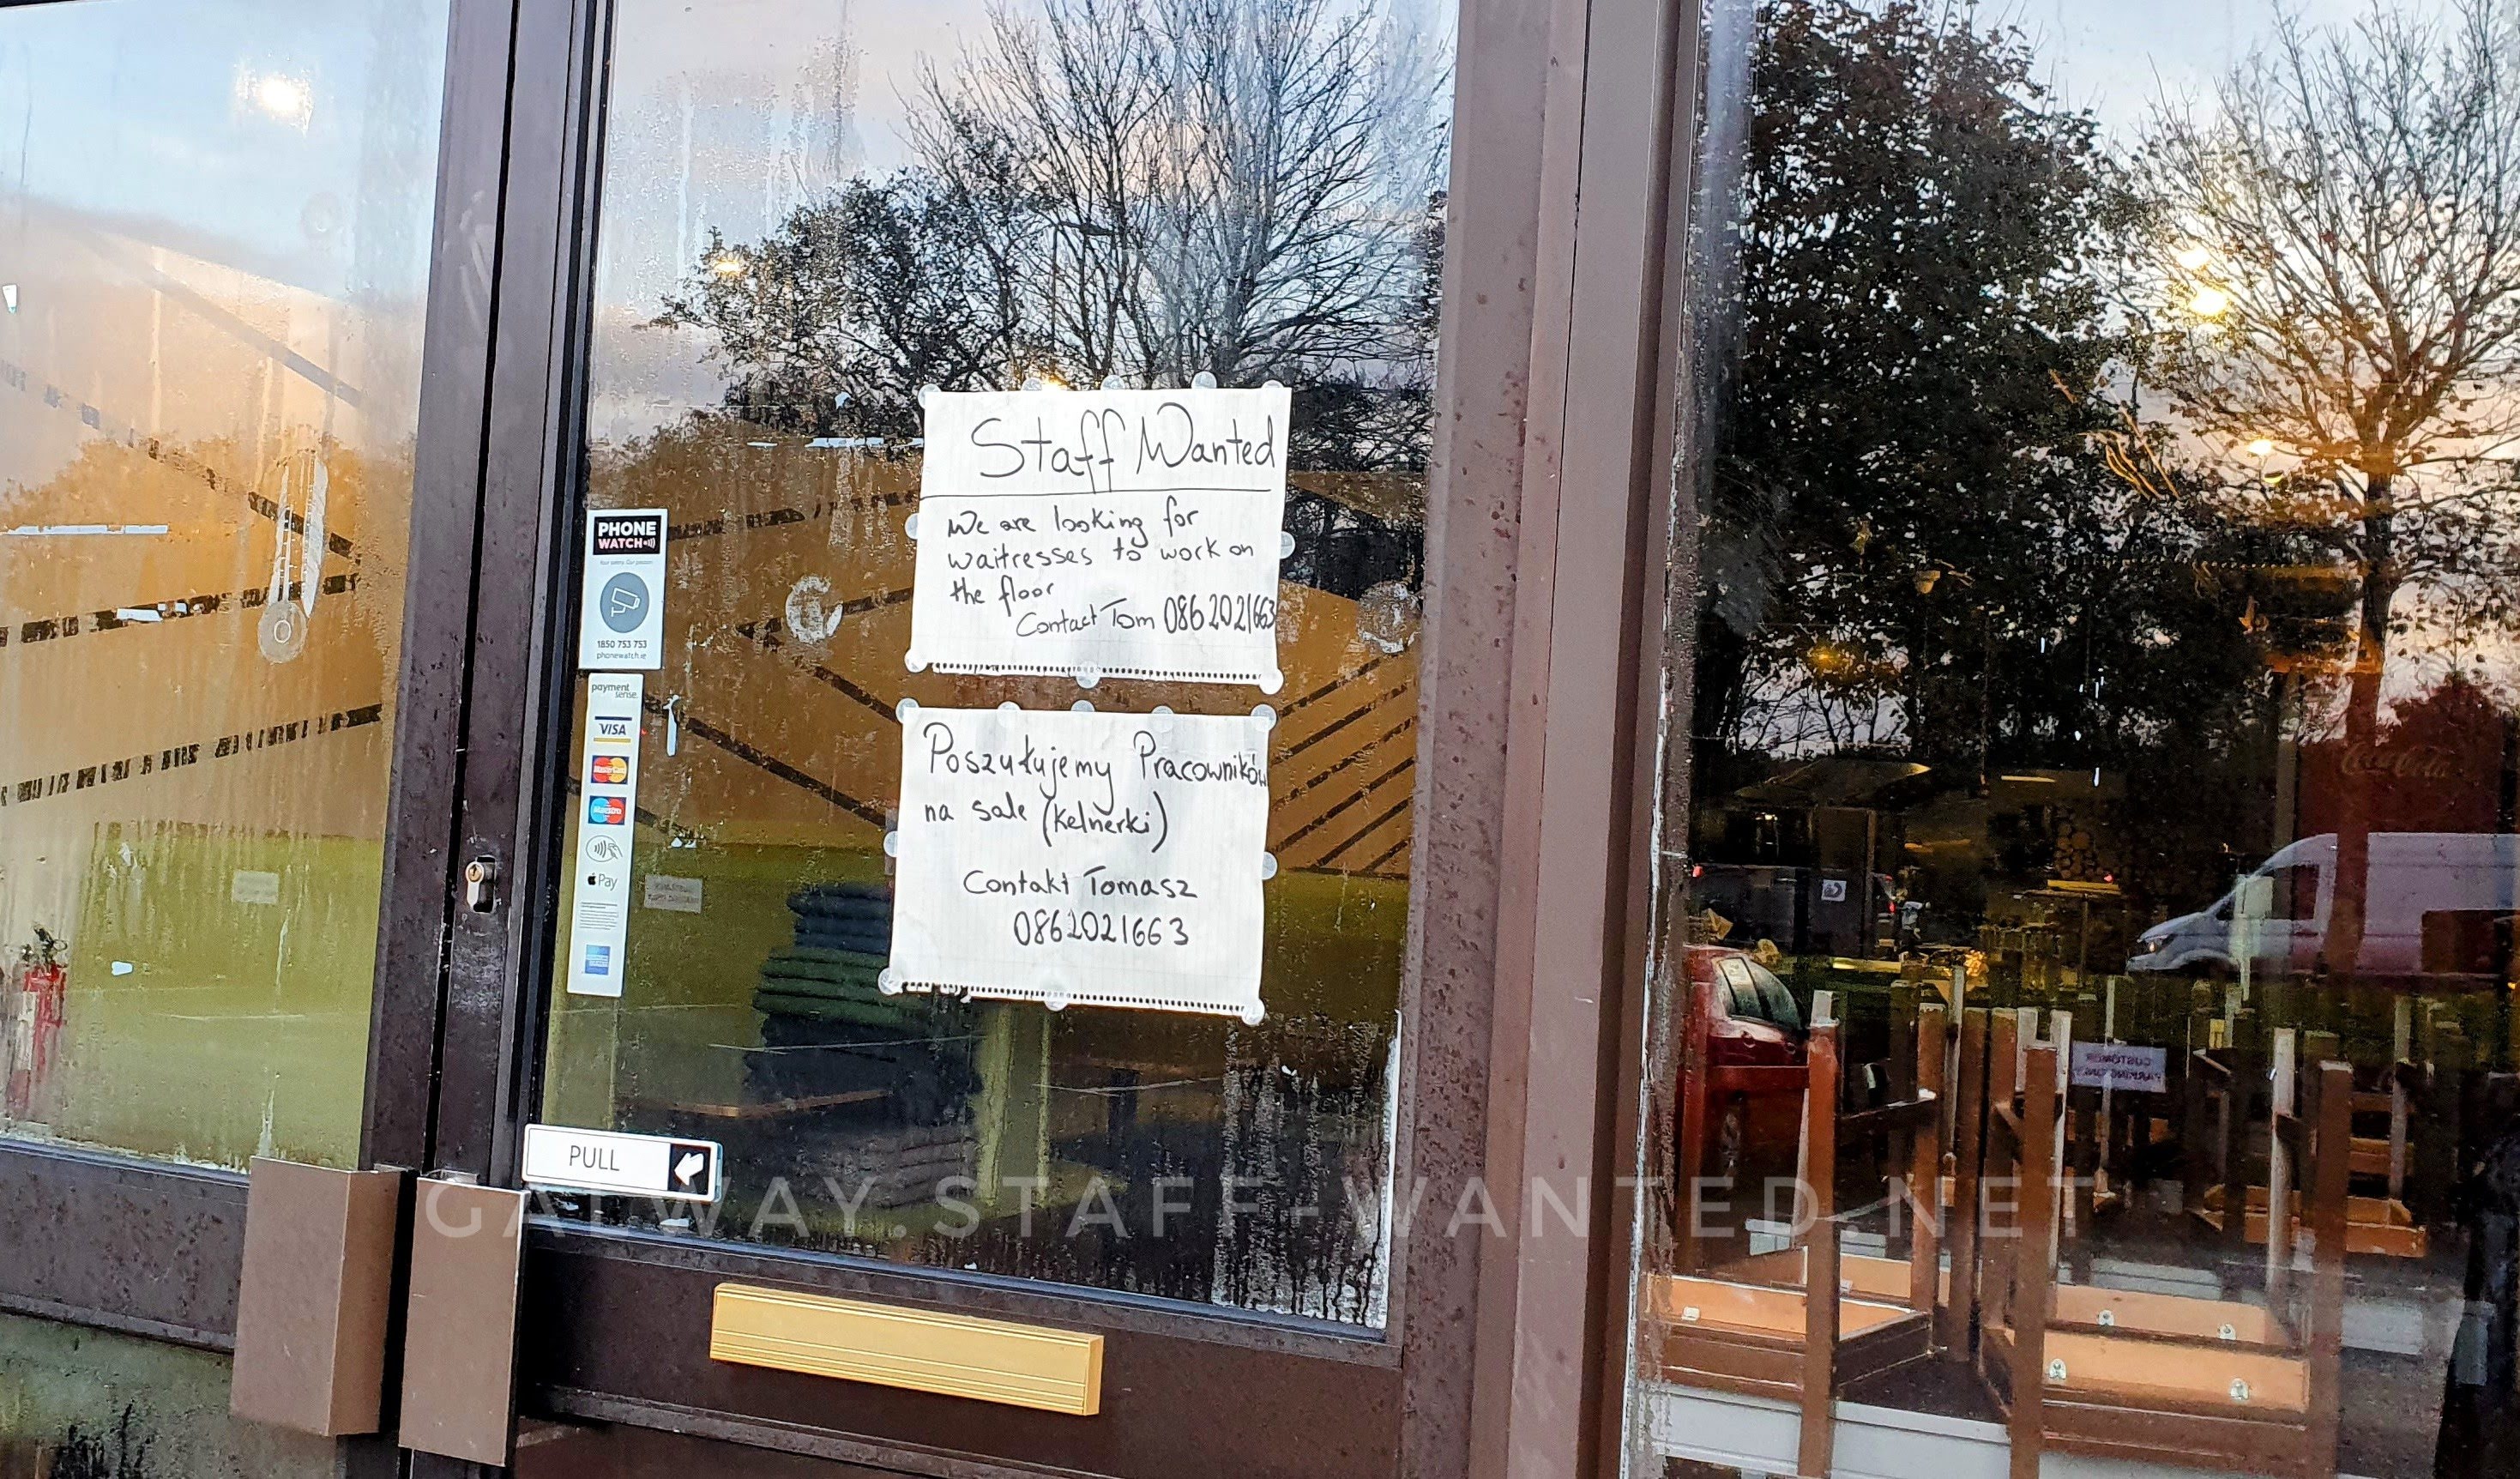 Staff Wanted
We are looking for
waitresses to work on
the floor
Contact Tom 086 2021663
PHONE
WATCH
1850 753 753
phonewatch.ie
payment
sense
VISA
MasterCard
Maestro
Pay
Poszukujemy Pracowników
na sale (kelnerki)
Contakt Tomasz
0862021663
PULL
Coca-Cola
CUSTOMER
PARKING ONLY
GALWAY.STAFF-WANTED.NET